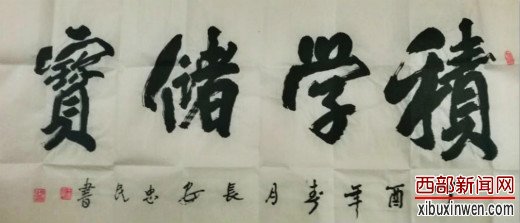 積学储寶
酉年春月長安忠民書
西部新闻网
xibuxinwen.com